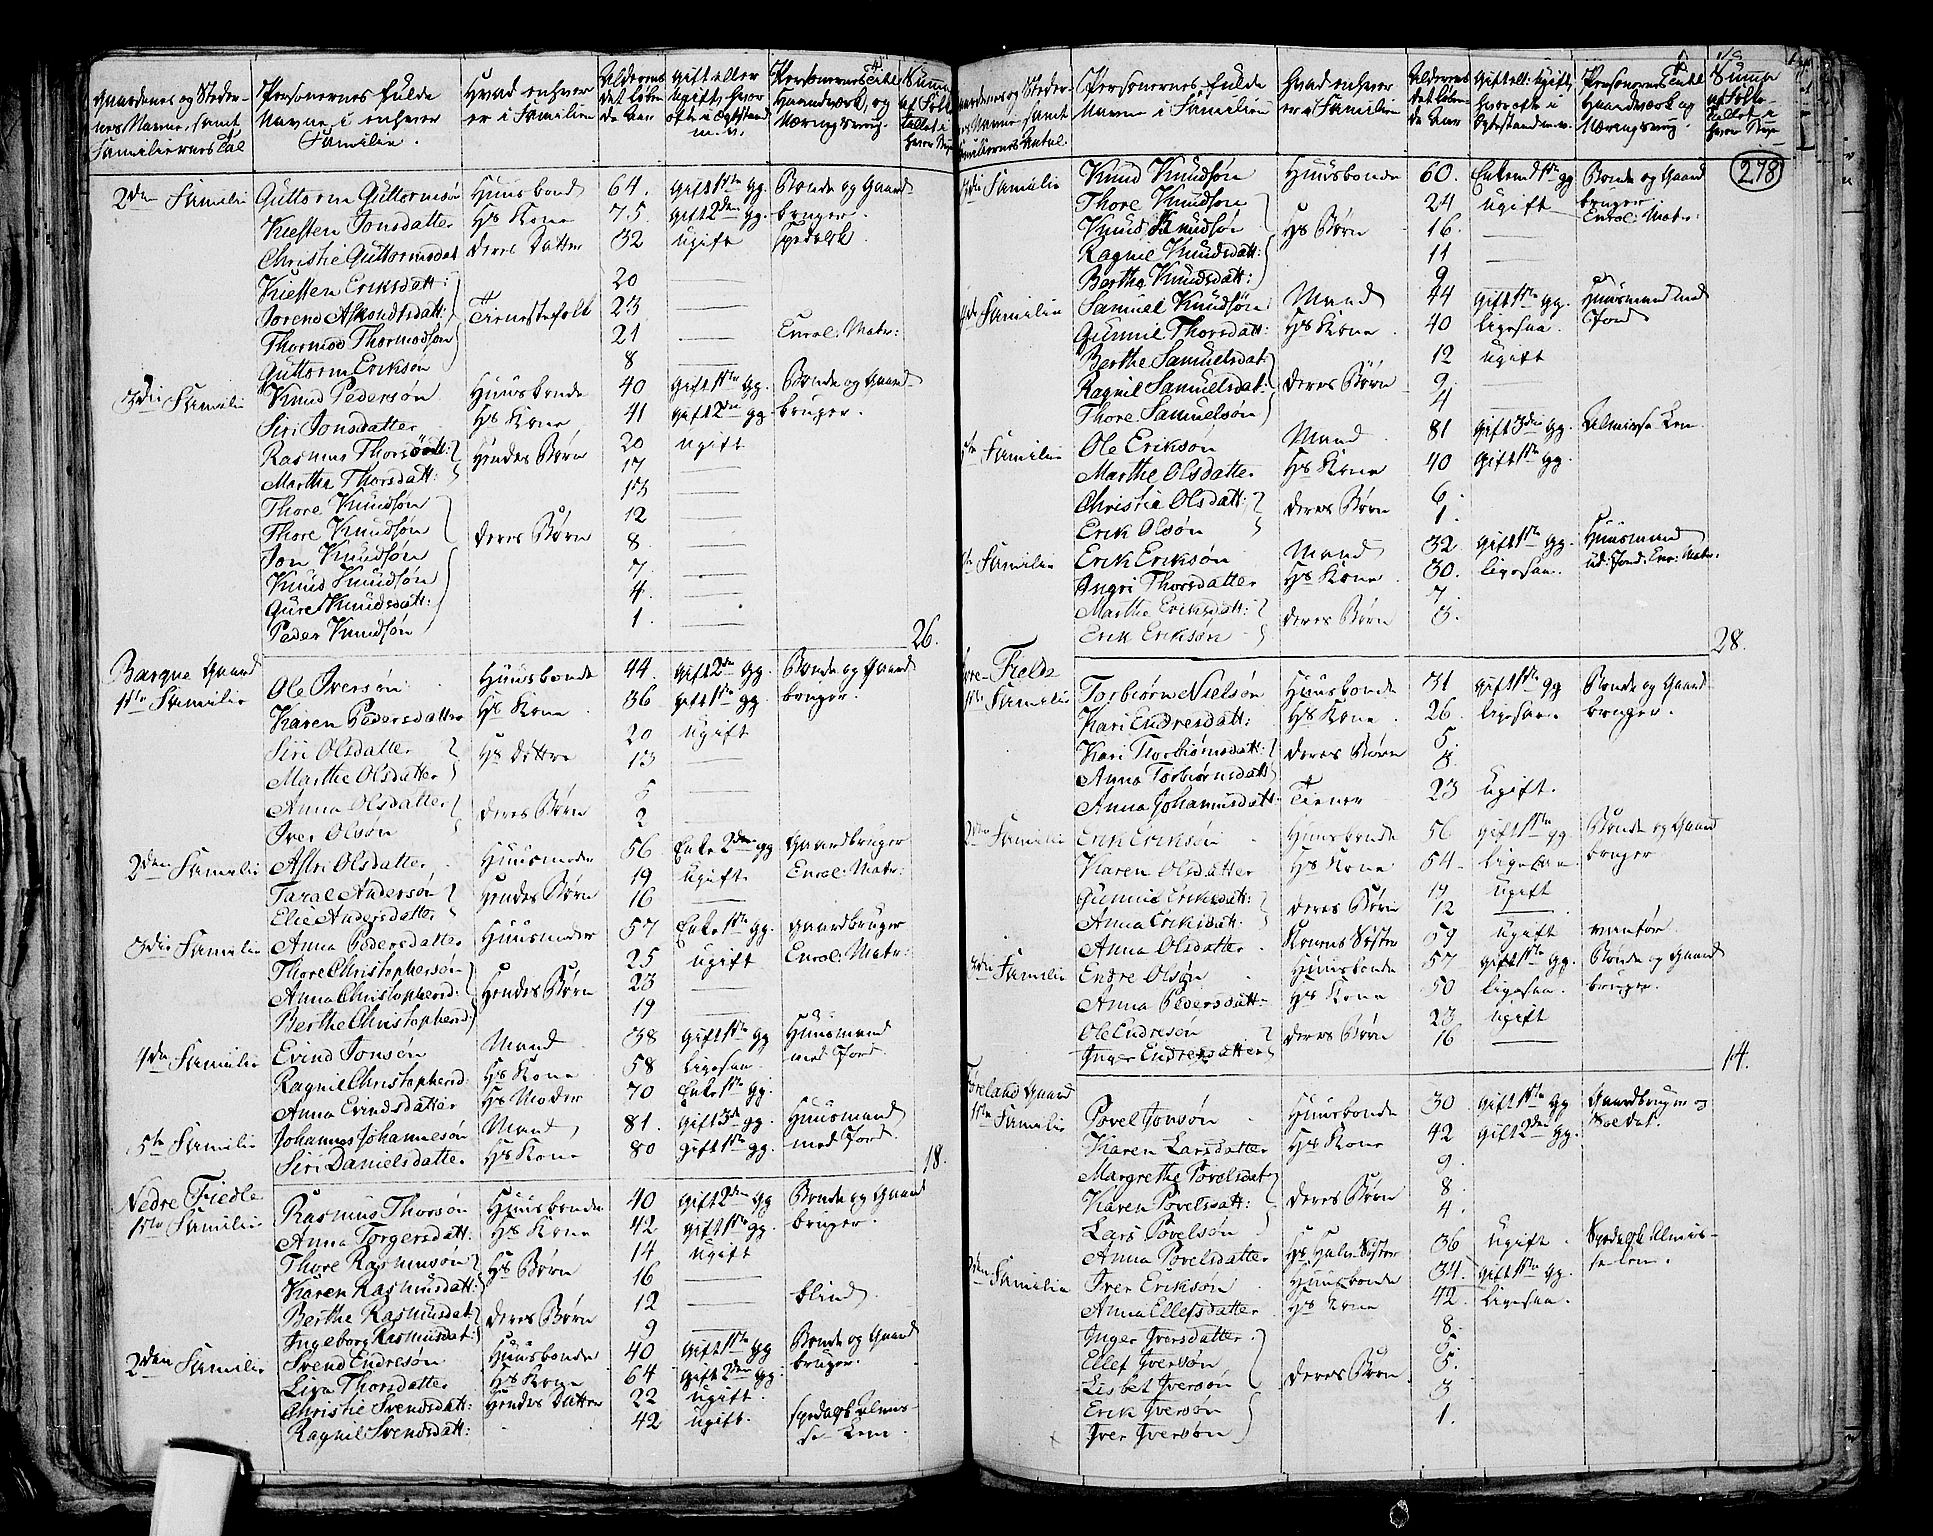 Gaardenes og Steder-
nes Navne, samt
Familiernes Tal
Personernes fulde
Navne i enhver
Familie.
Hvad enhver
er i Familien
Alderens
det løben
de Aar
Gift eller
ugift, hvor
ofte i Egtestand
m. v.
Personernes Titel
Haandverk, og
Næringsvey.
2den Familie Guttorm Guttormsøn Huusbond 64. Gift 1ste Gg. Bonde og Gaard
Kiesten Jonsdatter Hs Kone 75. Gift 2den Gg. bruger.
Christie Guttormsdat deres Datter 32 ugift spedalsk.
Kiesten Eriksdatt: 20
Sorend Askondsdatt: Tienestefolk 23
Thormod Thormodsøn 21 Enrol: Matr:
Guttorm Eriksøn 8
3die Familie Knud Pedersøn Huusbonde 40 Gift 1ste Gg. Bonde og Gaard-
Siri Jonsdatter Hs Kone 41 Gift 2den Gg bruger.
Rasmus Thorsøn Hendes Børn 20 ugift
Martha Thorsdatt: 17
Thore Knudsøn 13
Thore Knudsøn deres Børn 12
Jon Knudsøn 8
Knud Knudsøn 7
Gure Knudsdatt: 4
Peder Knudsøn 1. 26.
Barque Gaard
1ste Familie Ole Iversøn Huusbonde 44 Gift 2den Gg. Bonde og Gaard
Karen Pedersdatter Hs Kone 36 Gift 1ste Gg bruger.
Siri Olsdatter Hs Døttre 20 ugift
Marthe Olsdatter 13
Anna Olsdatter deres Børn 5
Iver Olsøn 2
2den Familie Astri Olsdatter Huusmoder 56 Enke 2den gg Gaardbruger
Taral Andersøn Hendes Børn 19 ugift Enrol: Matr:
Elie Andersdatter 16
3die Familie Anna Pedersdatter Huusmoder 57 Enke 1ste Gg. Gaardbruger
Thore Christophersøn Hendes Børn 25 ugift Enrol: Matr:
Anna Christophersd: 23
Berthe Christophersd: 19
4de Familie Evind Jonsøn Mand 38 Gift 1ste Gg Huusmand
Ragnil Christophersd: Hs Kone 58 Ligesaa. med Jord
Anna Evindsdatter Hs Moder 70 Enke 1ste Gg.
5te Familie Johannes Johannesøn Mand 81. Gift 3de Gg. Huusmand
Siri Danielsdatter Hs Kone 80 Gift 1ste Gg. med Jord. 18.
Nedre Fiedle
1ste Familie Rasmus Thorsøn Huusbonde 40 Gift 2den Gg Bonde og Gaard
Anna Torgersdatt: Hs Kone 42 Gift 1ste Gg. bruger.
Thore Rasmusøn Hs Børn 14 ugift
Karen Rasmusdatt: 16
Berthe Rasmusdat deres Børn 12 blind.
Ingeborg Rasmusdat: 9
2den Familie Svend Endresøn Huusbonde 40 Gift 1ste Gg Bonde og Gaard
Liva Thorsdatter Hs Kone 64 Gift 2den Gg. bruger.
Christie Svendsdatt: Hendes Datter 22 ugift
Ragnil Svendsdatt: 42 ugift. spedalsk Almis-
se Lem.
Personernes fulde
Navne i Familien
Hvad enhver
er i Familien
Alderens
det løben
de Aar
Gift ell: Ugift,
hvor ofte i
Egtestanden v.
Personernes Titel
Haandverk og
Næringsvey.
278
3die Familie Knud Knudsøn Huusbonde 60. Enkemd 1ste gg Bonde og Gaard
Thore Knudsøn Hs Børn 24 ugift bruger
Knud Knudsøn 16. Enrol: Matr:
Ragnil Knudsdatt: 11
Bertha Knudsdatt: 9
4de Familie Samuel Knudsøn Mand 44 Gift 1ste Gg. Huusmand med
Gunnil Thorsdatt: Hs Kone 40 Ligesaa. Jord
Berthe Samuelsdat 12 ugift
Ragnil Samuelsdat: deres Børn 9
Thore Samuelsøn 4
5te Familie Ole Eriksøn Mand 81 Gift 3die Gg. Almisse Lem
Marthe Olsdatter Hs Kone 40 Gift 1ste Gg.
Christie Olsdatt: deres Børn 6
Erik Olsøn 1.
Familie Erik Eriksøn Mand 32 Gift 1ste Gg. Huusmand
Ingri Thorsdatter Hs Kone 30. Ligesaa. ud: Jord: Enr: Matr:
Marthe Eriksdatt: deres Børn 7
Erik Eriksøn 3. 28.
Fielde
1ste Familie Torbiørn Nielsøn Huusbonde 31 Gift 1ste Gg Bonde og Gaard
Kari Endresdatt: Hs Kone 26 Ligesaa. bruger.
Kari Thorbiørnsdatt: deres Børn 5.
Anna Torbiørnsdatt 3.
Anna Johannesdatt Tiener 23 Ugift.
2den Familie Erik Eriksøn Huusbonde 56 Gift 1ste gg Bonde og Gaard
Karen Olsdatter Hs Kone 54 Ligesaa bruger
Gunnil Eriksdatt: deres Børn 19 ugift
Anna Eriksdatt: 12
Anna Olsdatter Konens Søster 59 ugift vanfør.
3die Familie Endre Olsøn Huusbonde 57 Gift 1ste Gg. Bonde og Gaard
Anna Pedersdatt Hs Kone 50 Ligesaa. bruger.
Ole Endresen deres Børn 23 ugift
Inger Endresdatter 16 14.
Føreland Gaard
1ste Familie Povel Jonsøn Huusbonde 30 Gift 1ste Gg Gaardbruger og
Karen Larsdatter Hs Kone 42 Gift 2den Gg. Soldat.
Margrethe Povelsdat 9
Karen Povelsdatt: deres Børn 8
Lars Povelsøn 4.
Anna Povelsdatter Hs Halv Søster 36 Ugift. Spedalsk Almis-
2den Familie Iver Eriksøn Huusbonde 34. Gift 1ste Gg. se Lem.
Anna Ellefsdatter Hs Kone 42. Ligesaa.
Inger Iversdatter 8.
Ellef Iversøn deres Børn
Lisbet Iversøn 5.
Erik Iversøn 3
Iver Iversøn 1.